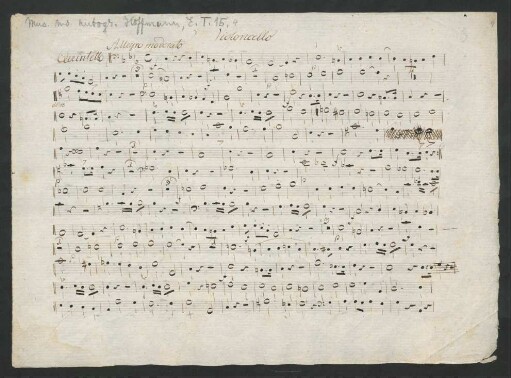 Mus. ms. autogr. Hoffmann, E. T. 15.
Violoncello
Allegro moderato
Quintett